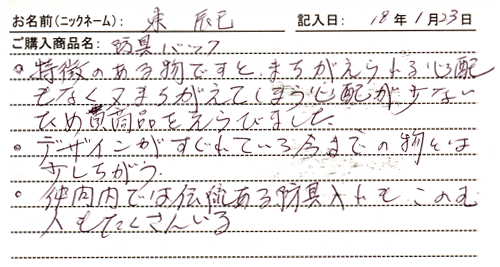 お名前(ニックネーム): 東 辰巳 記入日: 18年1月23日
ご購入商品名: 防具バック
。特徴のある物ですと、まちがえられる心配
もなく又まちがえてしまう心配が少ない
ため貴商品をえらびました。
。デザインがすぐれている今までの物とは
少しちがう。
。仲間内では伝統ある防具入れも このむ
人もたくさんいる